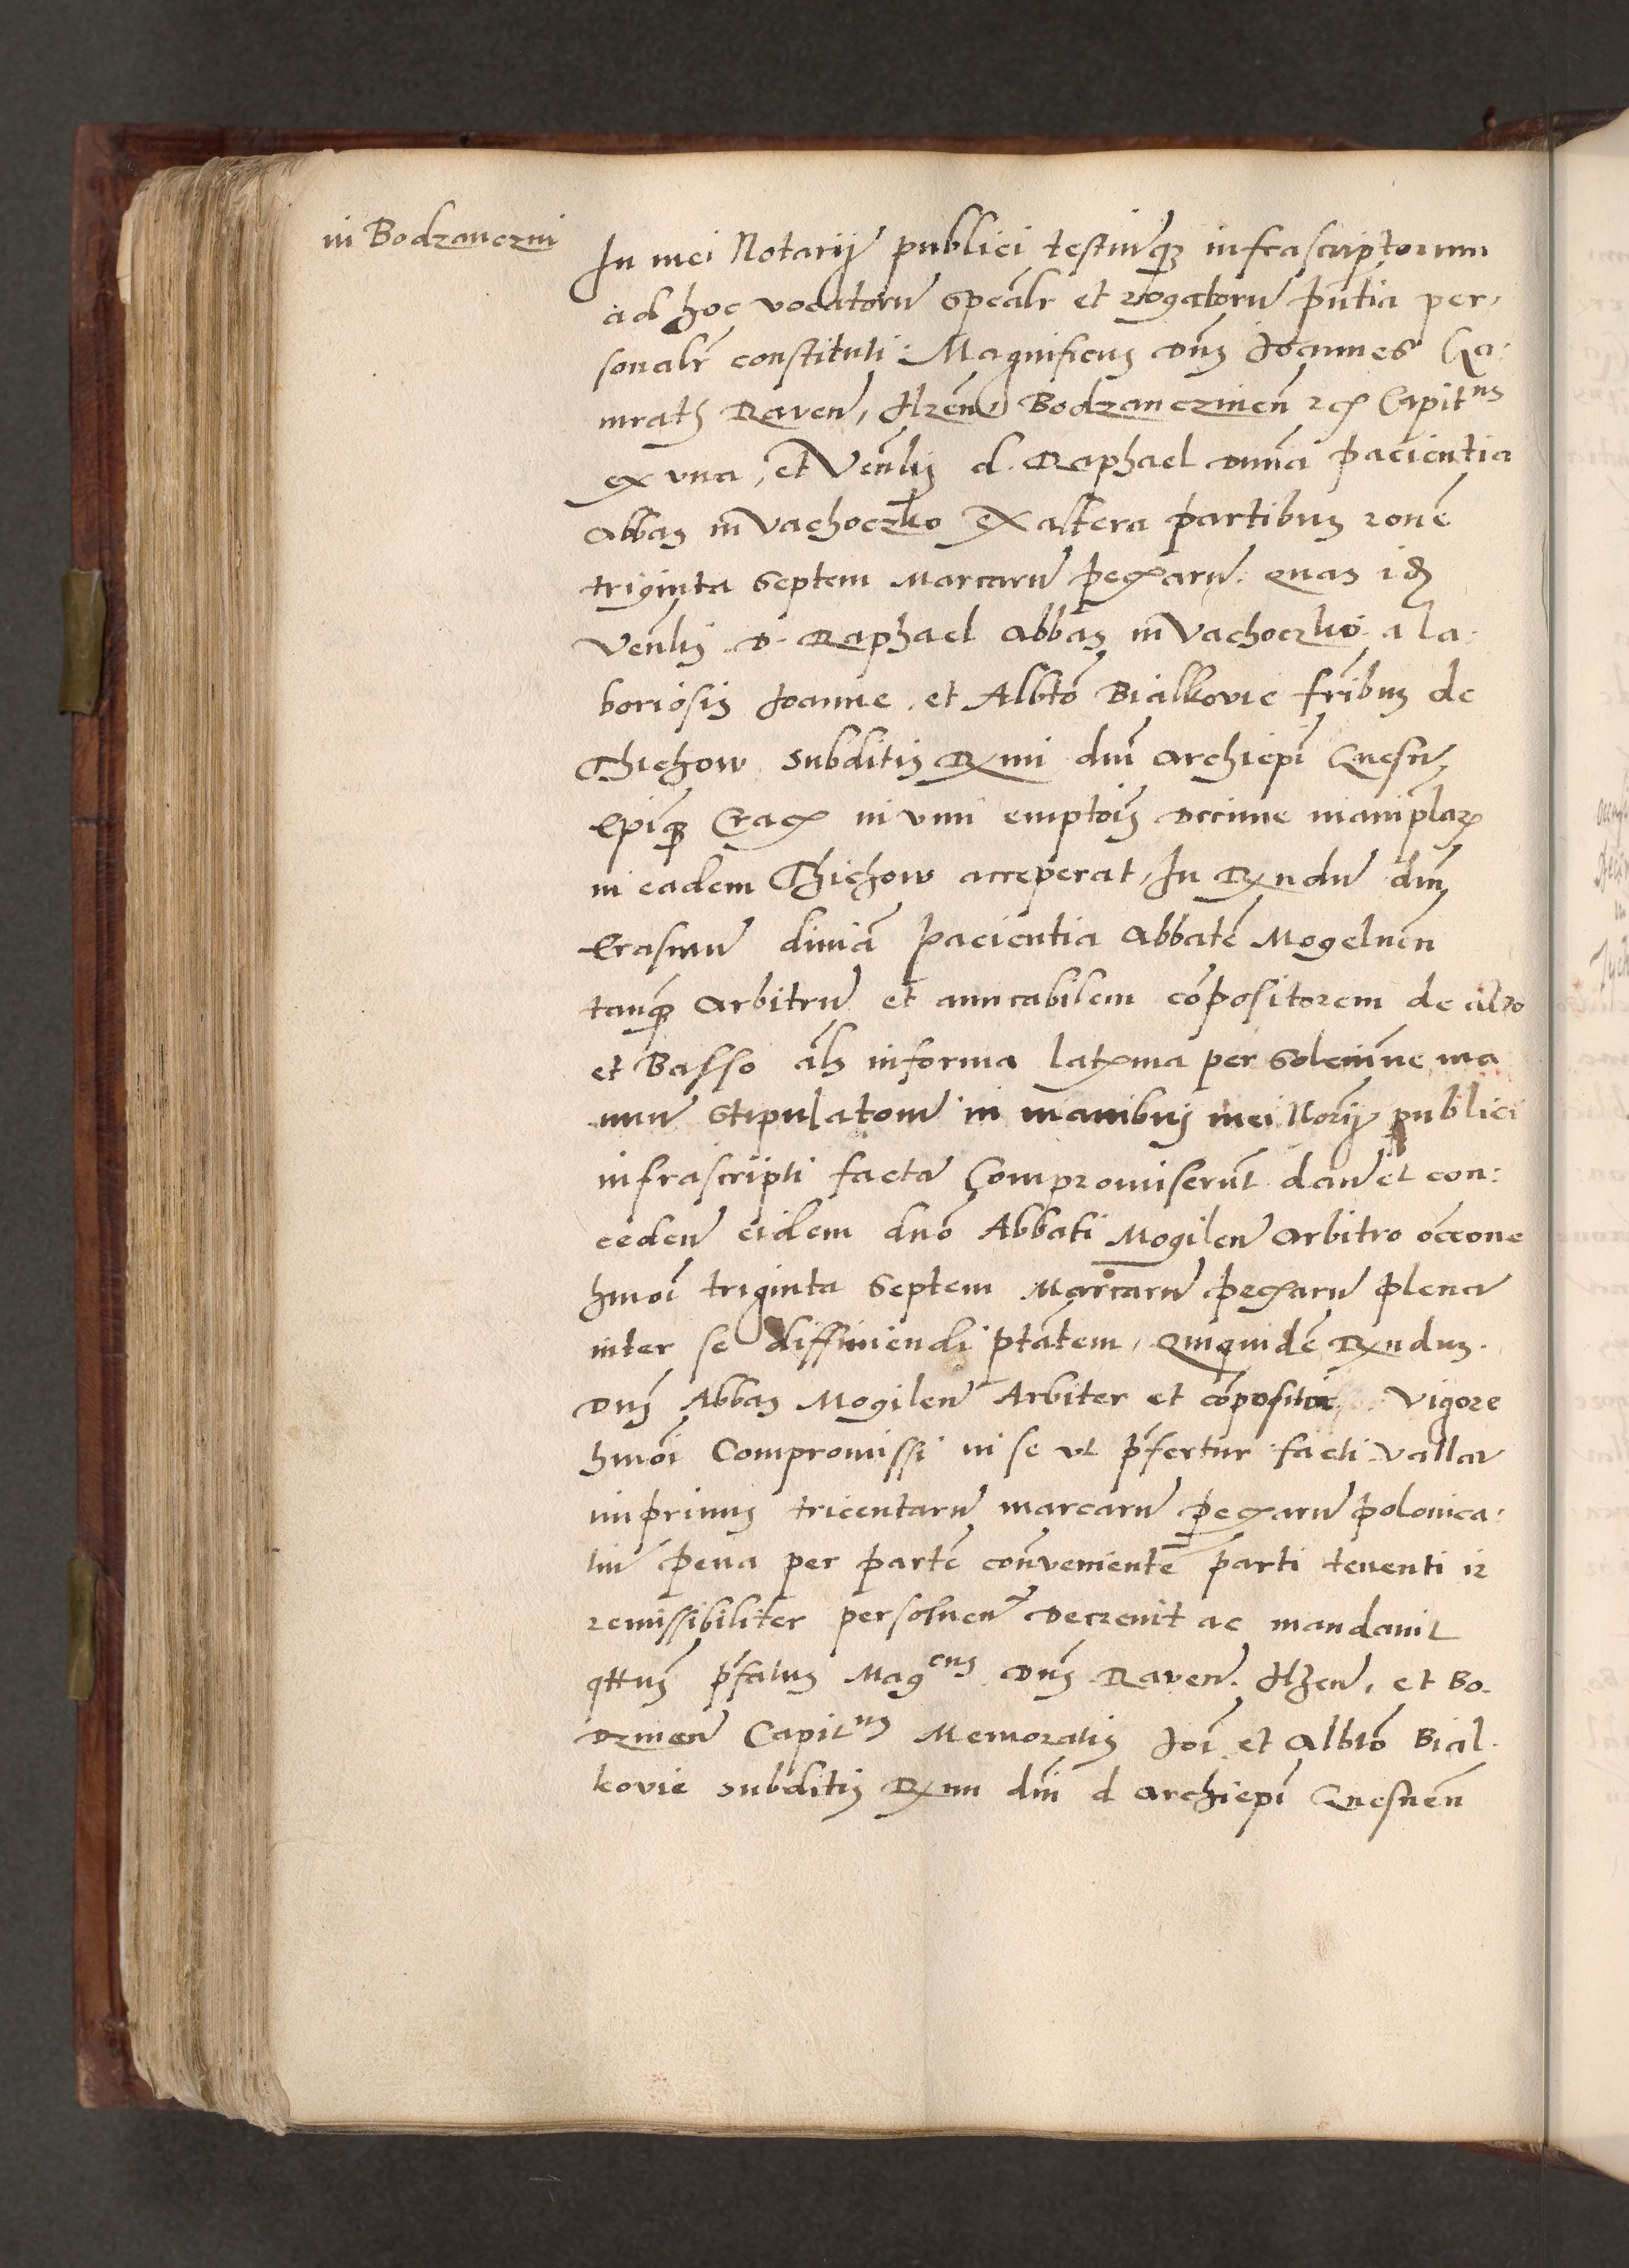 in Bodzanczni
In mei Notarij publici testiumque infrascriptorum
ad hoc vocatorum spealr et rogatorum pntia per,
sonalr constituti: Magnificus dns Joannes Ga:
mrath Raven, Ilzen, Bodzanczinen Capitnus
ex una, et Venlis d. Raphael divina paciencia
Abbas in Vachoczko Ex altera partibus rone
triginta septem Marcarum pecuarum quas
Venlis D. Raphael Abbas in Vachoczko a la:
boriosis Joanne et Albto Bialkovie fribus de
Thichow subditis Rmi dni Archiepi Gnesn,
Epique Crac in vim emptois decime maniplar
in eadem Thichow acceperat, In Rndum dnm
Erasmum divina paciencia Abbate Mogelnen
tanq Arbitrum et amicabilem compositorem de alto
et Basso als in forma latma per solemne ma
num stipulatom in manibus mei Norij publici
infrascripti facta Compromiserunt dan et con:
ceden eidem dno Abbati Mogilen Arbitro occone
hmoi triginta septem Marcarum pecuarum plena
inter se diffiniendi ptatem, Quiquide Rndus.
Dns Abbas Mogilen Arbiter et compositor Vigore
hmoi Compromissi in se ut pfertur facti Vallar
imprimis tricentarum marcarum pecuarum polonica:
lium pena per parte convenientem parti tenenti ir
remissibiliter persolven decrevit ac mandavit
qttus pfatus Magcus Dns Raven. Ilzen, et Bo.
dzinen Capitnus Memoratis Joi et Albto Bial.
kovie subditis Rmi dni d Archiepi Gnesnen